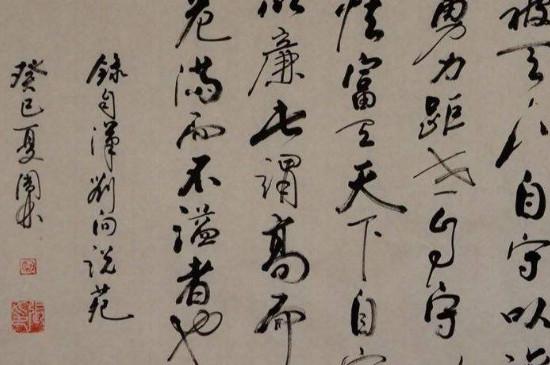 被天下自守以
勇力距世自守
怯富有天下自守
以廉此謂高而
危滿而不溢者也
錄自漢劉向說苑
癸巳夏